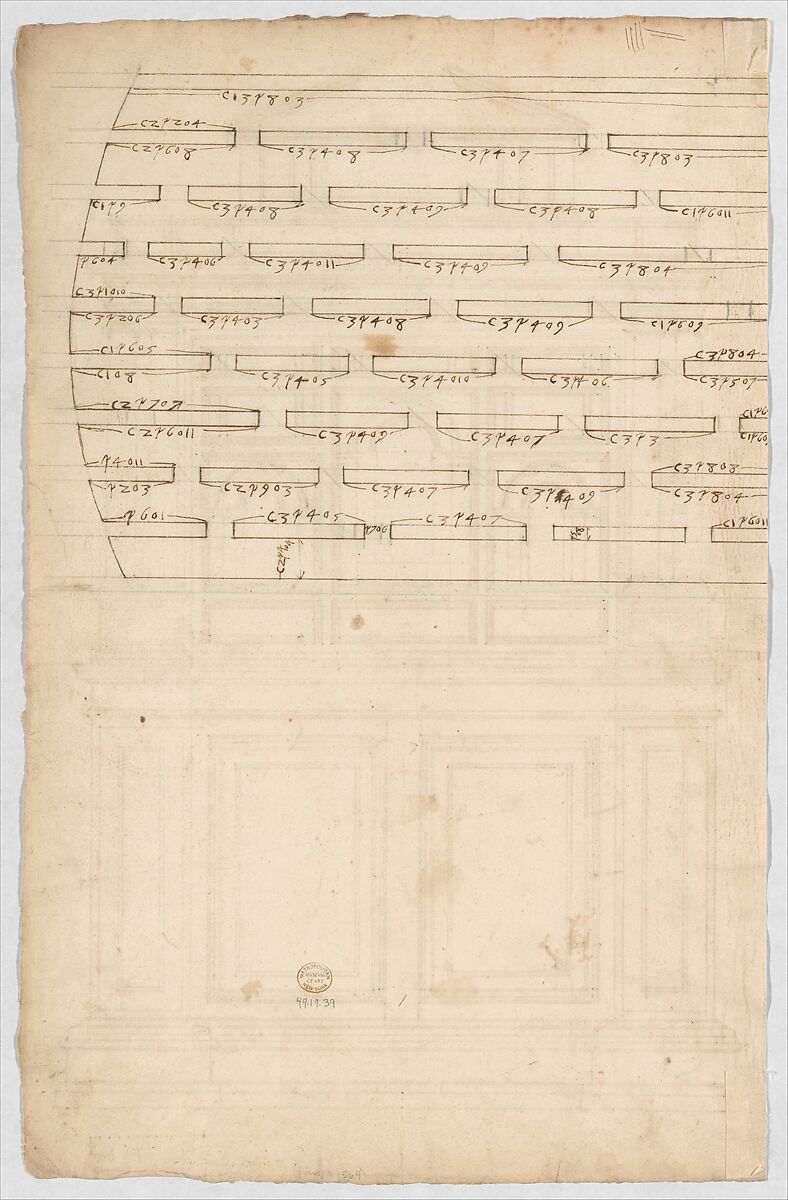 c13p803
c2p204
c2p608 c3p408 c3p407 c3p803
c1p9 c3p408 c3p409 c3p408 c1p6011
p604 c3p406 c3p4011 c3p409 c3p804
c3p1010
c3p206 c3p403 c3p408 c3p409 c1p609
c1p605 c3p804
c108 c3p405 c3p4010 c3p406 c3p507
c2p707
c2p6011 c3p409 c3p407 c3p3
p4011 c3p808
p203 c2p903 c3p407 c3p409 c3p804
p601 c3p405 p706 c3p407 c1p6011
METROPOLITAN
MUSEUM
OF ART
NEW YORK
49.19.39